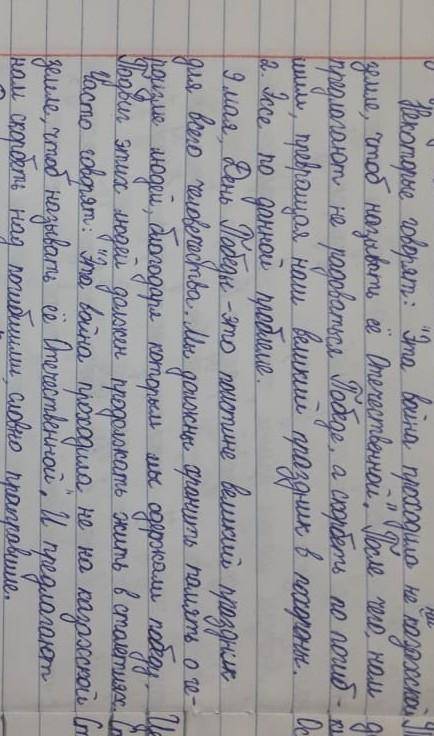 Некоторые говорят: "Эта война проходила не на казахской
земле, чтоб называть её Отечественной". После чего, нам
предлагают не радоваться Победе, а скорбеть по погиб-
шим, превращая наш великий праздник в похороны.
2. Эссе по данной проблеме.
9 мая, День Победы - это поистине великий праздник
для всего человечества. Мы должны хранить память о ге-
роизме людей, благодаря которым мы одержали победу.
Подвиг этих людей должен продолжать жить в столетиях.
Часто говорят: "Эта война проходила не на казахской
земле, чтоб называть её Отечественной". И предлагают
нам скорбеть над погибшими, словно проигравшие.